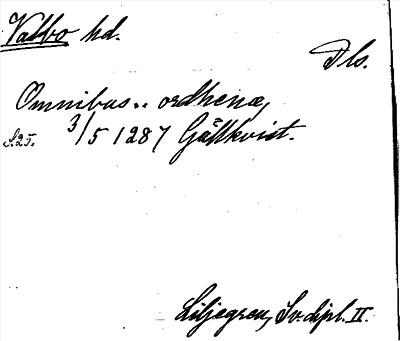 Valbo hd.
Dls.
Omnibus .. ordhene,
S. 25. 3/5 1287 Gällkvist.
Liljegren, Sv. dipl. II.